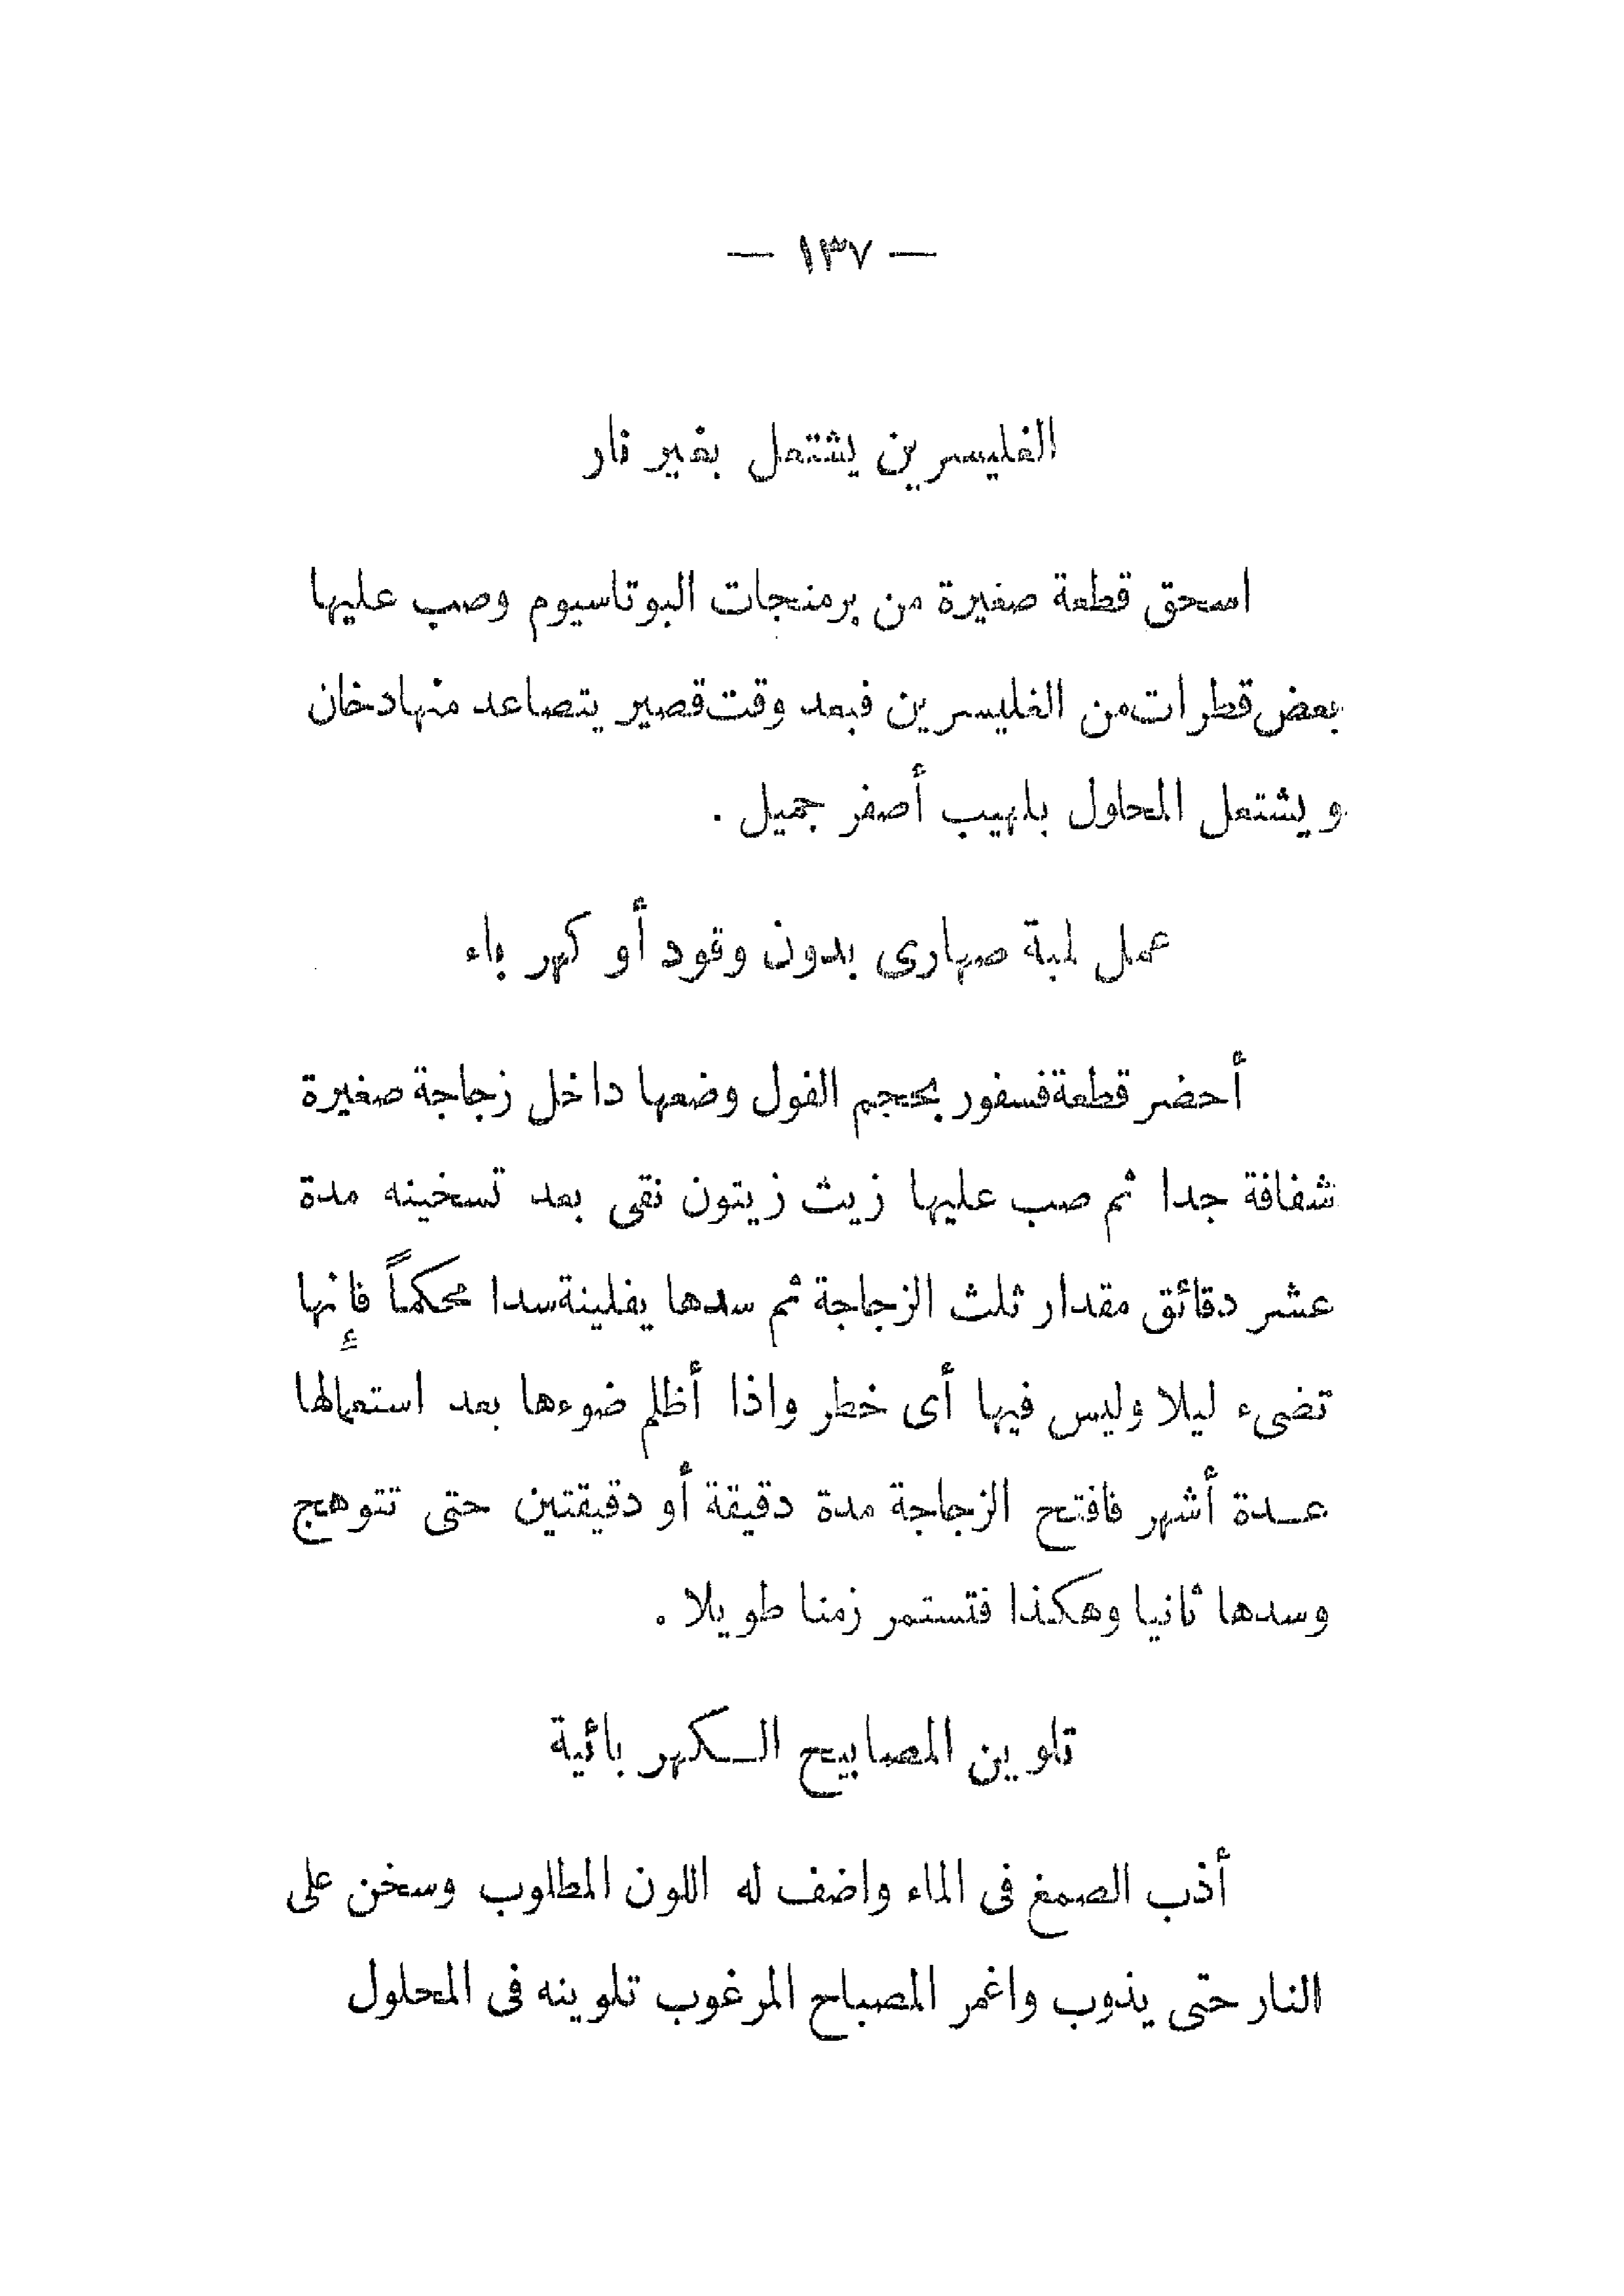 — ١٣٧ —
الغليسرين يشتعل بغير نار
اسحق قطعة صغيرة من برمنجات البوتاسيوم وصب عليها
بعض قطرات من الغليسرين فبعد وقت قصير يتصاعد منها دخان
ويشتعل المحلول بلهيب أصفر جميل .
عمل لمبة صهارى بدون وقود أو كهرباء
أحضر قطعة فسفور بحجم الفول وضعها داخل زجاجة صغيرة
شفافة جدا ثم صب عليها زيت زيتون نقى بعد تسخينه مدة
عشر دقائق مقدار ثلث الزجاجة ثم سدها بفلينة سدا محكماً فإنها
تضىء ليلا وليس فيها أى خطر واذا أظلم ضوءها بعد استعمالها
عدة أشهر فافتح الزجاجة مدة دقيقة أو دقيقتين حتى تتوهج
وسدها ثانيا وهكذا فتستمر زمنا طويلا .
تلوين المصابيح الكهربائية
أذب الصمغ فى الماء واضف له اللون المطلوب وسخن على
النار حتى يذوب واغمر المصباح المرغوب تلوينه فى المحلول